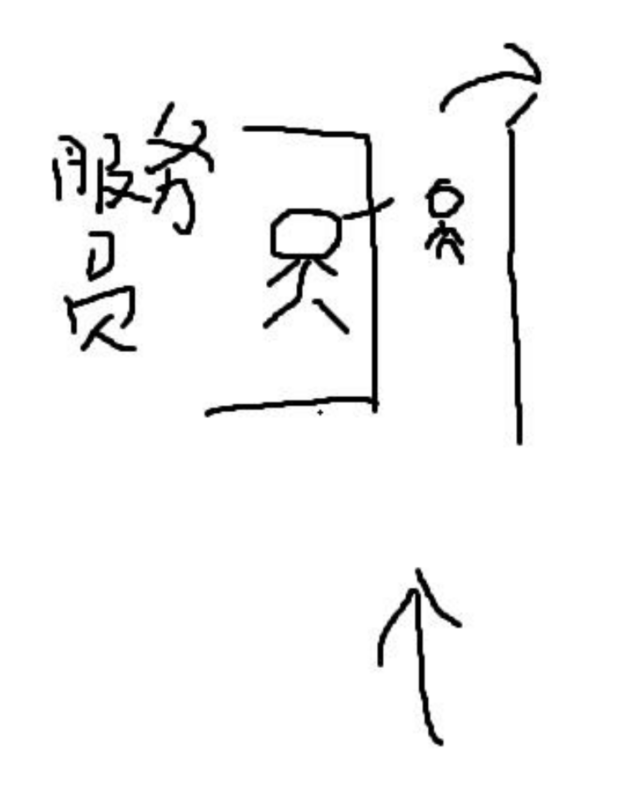 服务
员